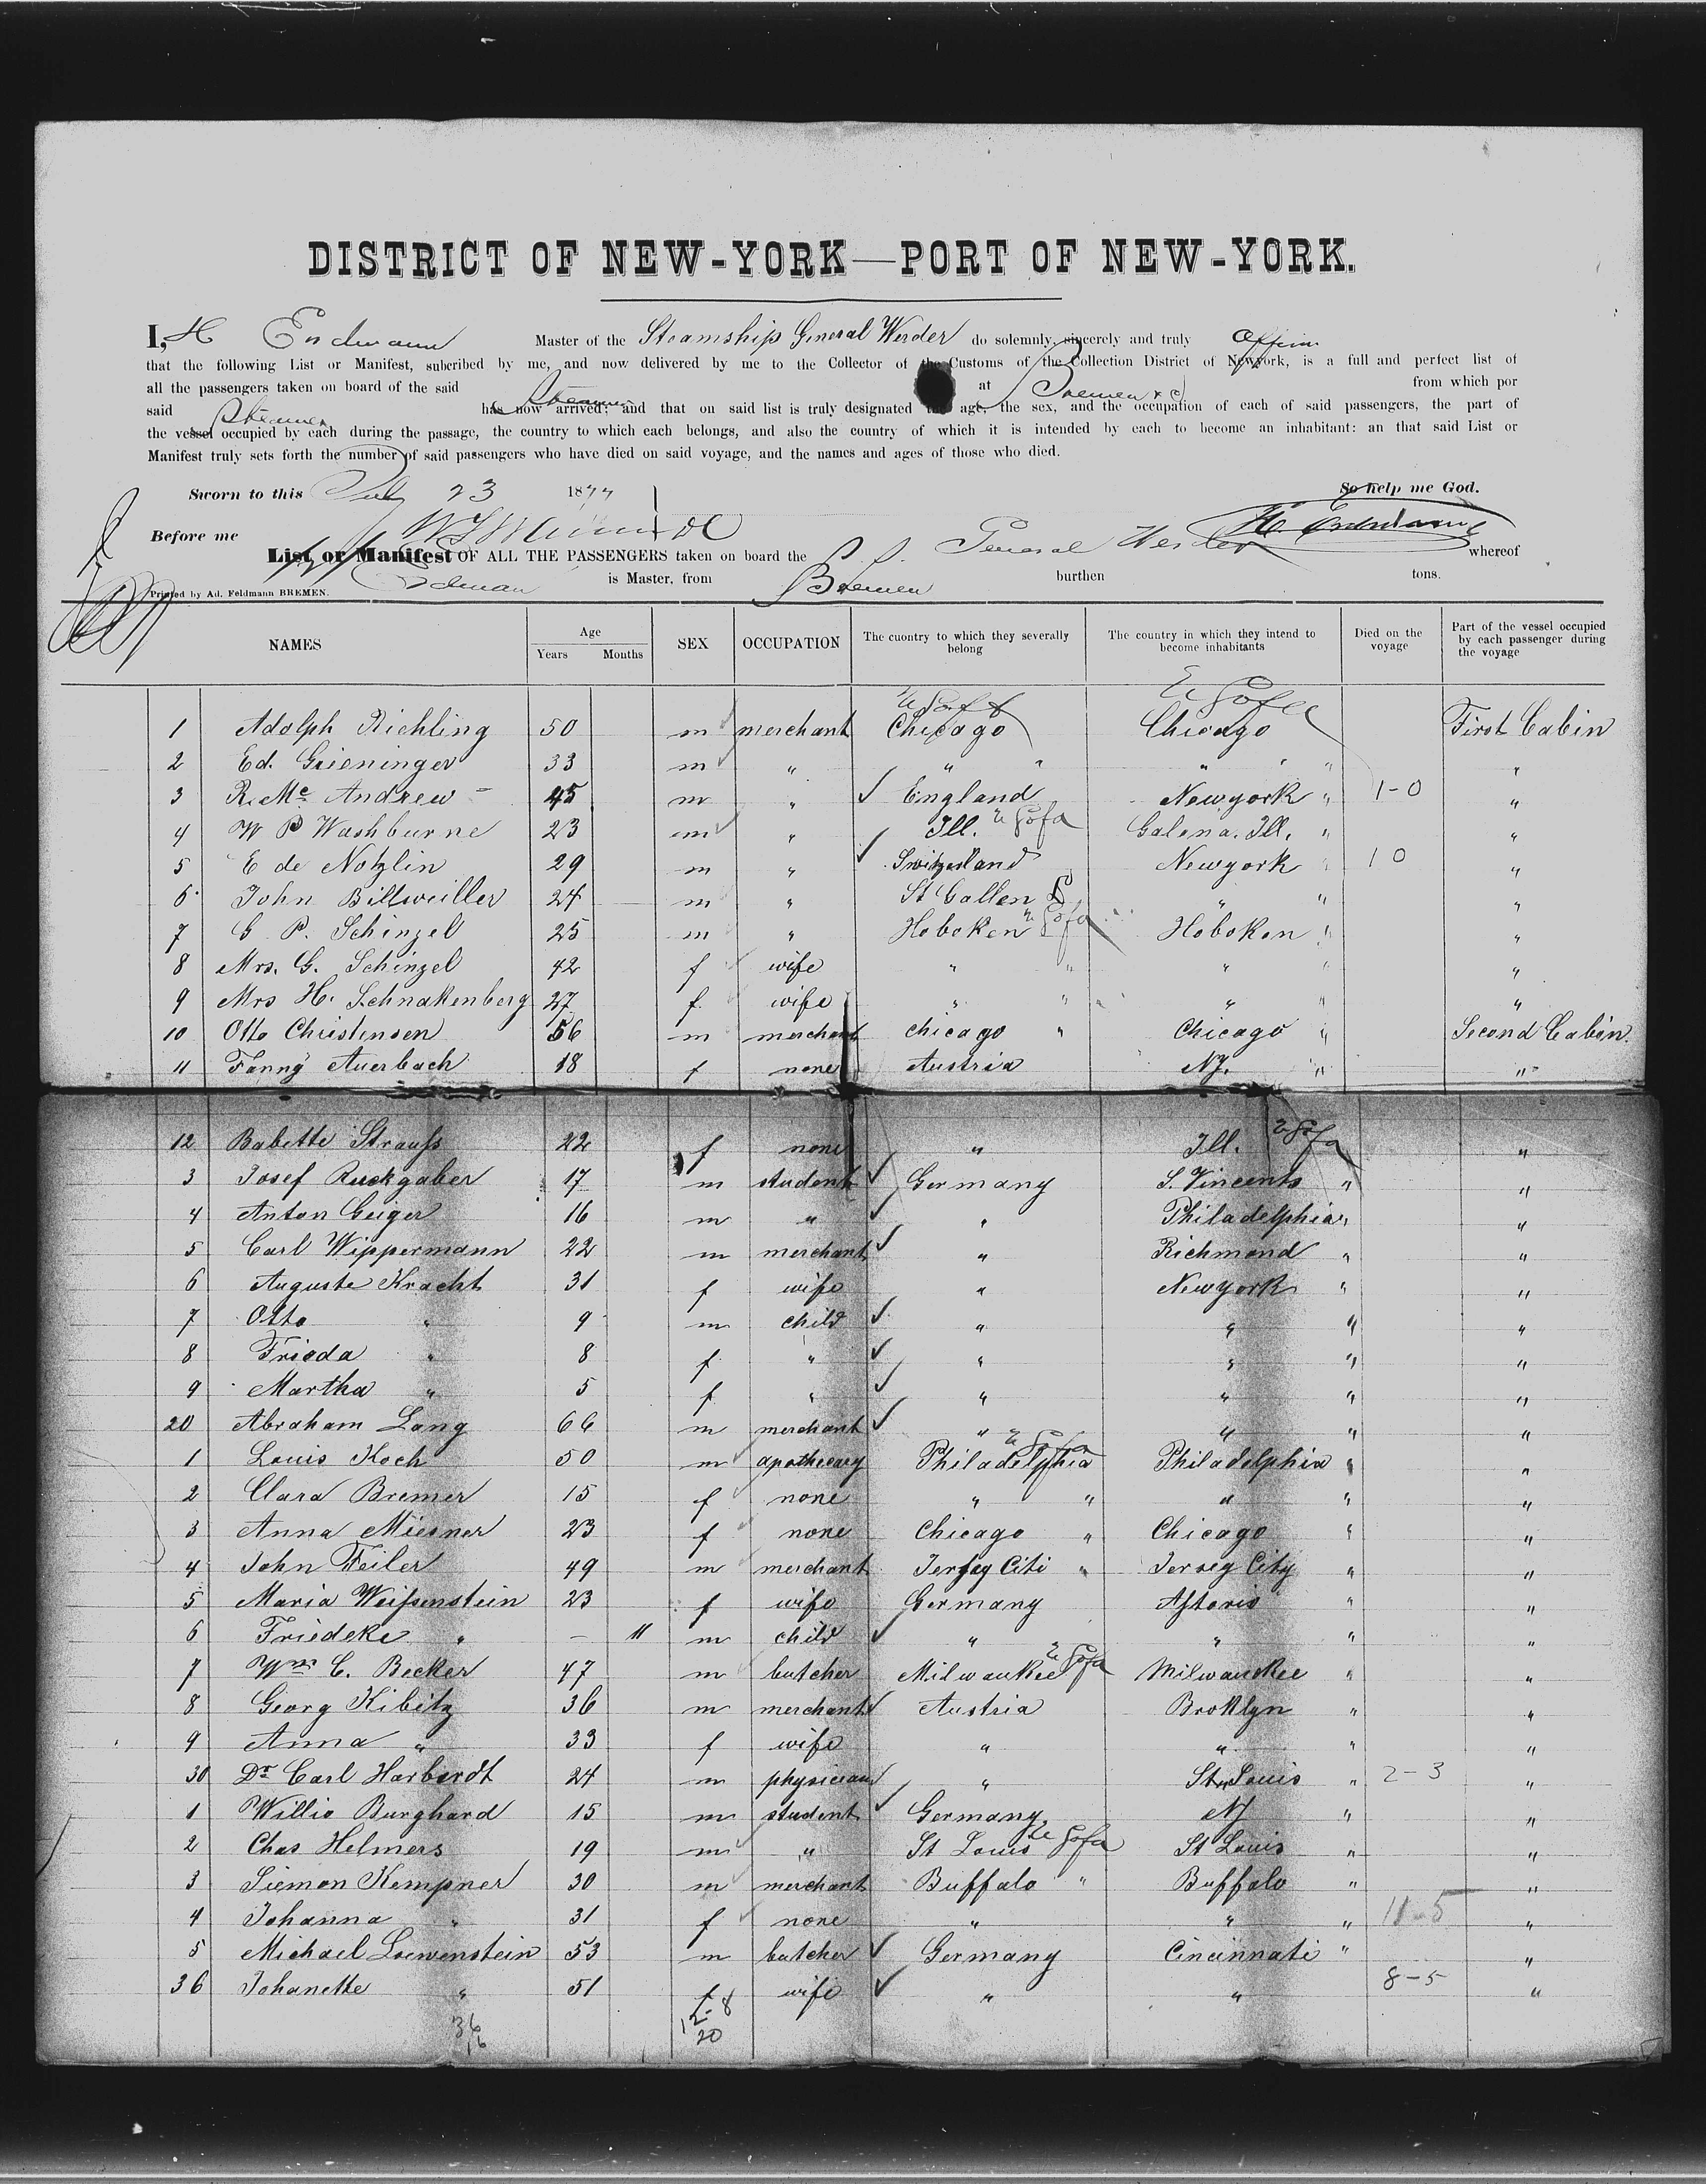 DISTRICT OF NEW-YORK—PORT OF NEW-YORK.
I, H Erdmann Master of the Steamship General Werder do solemnly, sincerely and truly affirm
that the following List or Manifest, subcribed by me, and now delivered by me to the Collector of the Customs of the Collection District of Newyork, is a full and perfect list of
all the passengers taken on board of the said Steamer at Bremen from which por
said Steamer has now arrived; and that on said list is truly designated the age, the sex, and the occupation of each of said passengers, the part of
the vessel occupied by each during the passage, the country to which each belongs, and also the country of which it is intended by each to become an inhabitant: an that said List or
Manifest truly sets forth the number of said passengers who have died on said voyage, and the names and ages of those who died.
Sworn to this July 23 1877 So help me God.
Before me H. Erdmann
List or Manifest OF ALL THE PASSENGERS taken on board the S. S. General Werder whereof
Erdman is Master, from Bremen burthen tons.
Printed by Ad. Feldmann BREMEN.
NAMES Age Years Months SEX OCCUPATION The cuontry to which they severally belong The country in which they intend to become inhabitants Died on the voyage Part of the vessel occupied by each passenger during the voyage
1 Adolph Richling 50 m merchant Chicago Chicago First Cabin
2 Ed. Grieninger 33 m " " " " " "
3 R. Mc Andrew 45 m " England Newyork " 1-0 "
4 W P Washburne 23 m " Ill. Galena. Ill. " "
5 E de Notzlin 29 m " Switzerland Newyork " 1 0 "
6 John Billweiller 24 m " St Gallen " " "
7 G P. Schinzel 25 m " Hoboken Hoboken " "
8 Mrs. G. Schinzel 42 f wife " " " " "
9 Mrs H. Schnakenberg 27 f. wife " " " " "
10 Otto Christensen 56 m merchant Chicago " Chicago " Second Cabin.
11 Fanny Auerbach 18 f none Austria NY. " "
12 Babette Strauss 22 f none " Ill. "
3 Josef Ruckgaber 17 m student Germany S. Vincents " "
4 Anton Geiger 16 m " " Philadelphia " "
5 Carl Wippermann 22 m merchant " Richmond " "
6 Auguste Kracht 31 f wife " Newyork " "
7 Otto " 9 m child " " " "
8 Frieda " 8 f " " " " "
9 Martha " 5 f " " " " "
20 Abraham Lang 66 m merchant " " " "
1 Louis Koch 50 m apothecary Philadelphia Philadelphia " "
2 Clara Bremer 15 f none " " " " "
3 Anna Miesner 23 f none Chicago " Chicago " "
4 John Feiler 49 m merchant Jersey Citi " Jersey City " "
5 Maria Weissenstein 23 f wife Germany Astoria " "
6 Friedeke " — 11 m child " " " "
7 Wm C. Becker 47 m butcher Milwaukee Milwaukee " "
8 Georg Kibitz 36 m merchant Austria Broklyn " "
9 Anna " 33 f wife " " " "
30 Dr Carl Harberdt 24 m physician " St Louis " 2-3 "
1 Willie Burghard 15 m student Germany NY " "
2 Chas Helmers 19 m " St Louis St Louis " "
3 Siemon Kempner 30 m merchant Buffalo " Buffalo " "
4 Johanna " 31 f none " " " 11-5 "
5 Michael Loewenstein 53 m butcher Germany Cincinnati " "
36 Johanette " 51 f wife " " 8-5 "
36
16
12-8
20